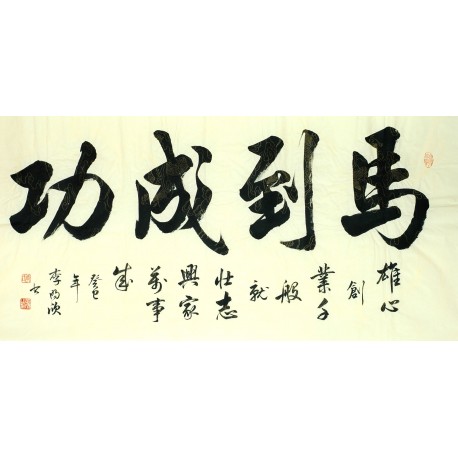 馬到成功
雄心
創
業千
般
就
壯志
興家
萬事
成
癸巳
年
李
书